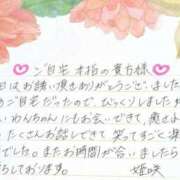 ご自宅 本指の貴方様
日はお誘い頂きありがとうございました
ご自宅だったので、びっくりしました
いわんちゃんにもお会いできて、癒さ
たくさんお話しできて笑ってすごく楽
でした。またお時間が合いましたら
ちしております。 姫咲